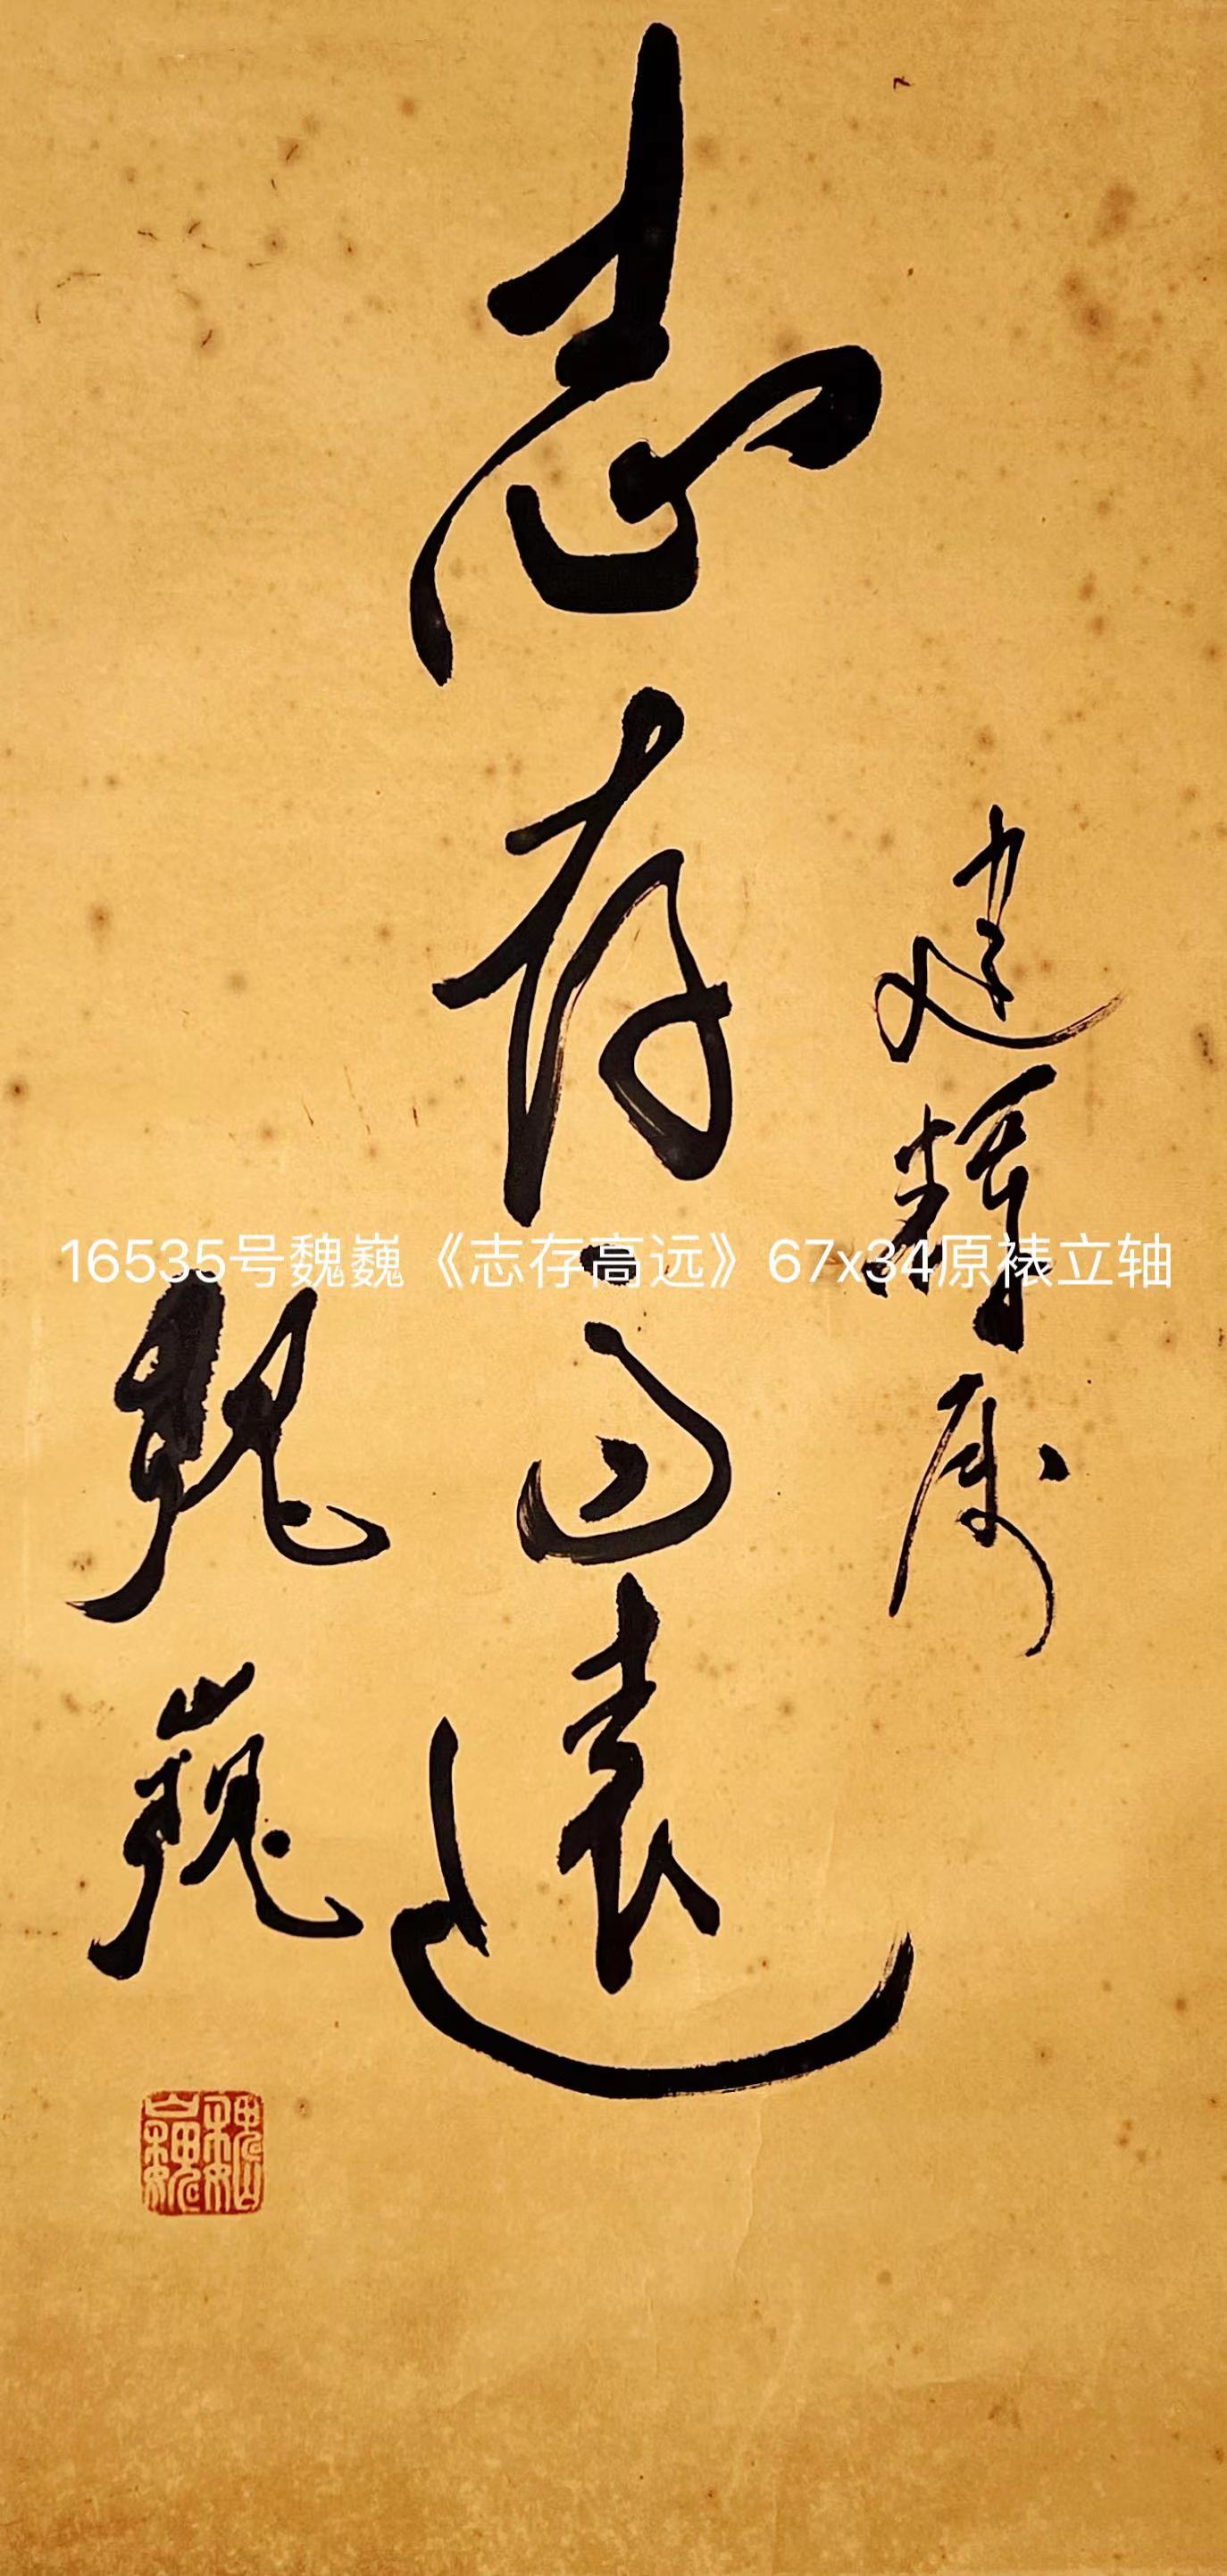 建辉属
志存高遠
魏巍
魏巍
16535号魏巍《志存高远》67x34原裱立轴